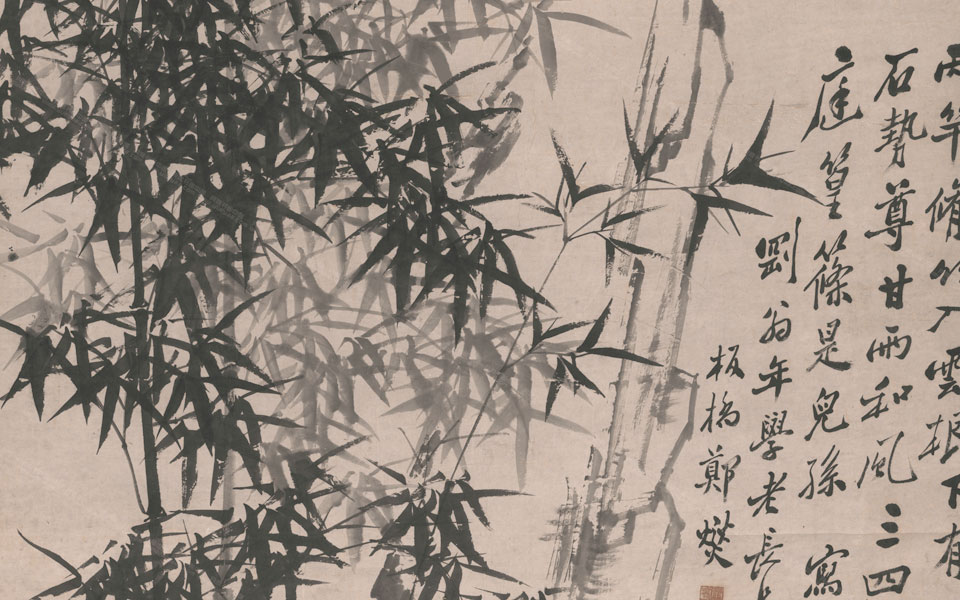 兩竿脩竹入雲根下有
石勢尊甘雨和風三四
庭篁篠是兒孫 寫
劉翁年學老長
板橋鄭燮